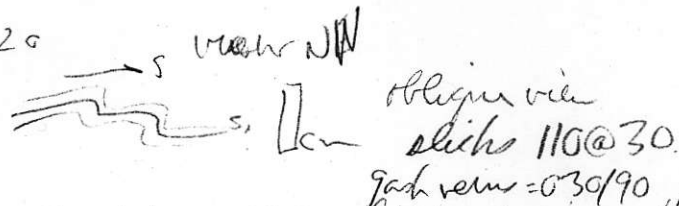 20
S NW
S₁ cm oblique view
slicks 110@30.
gash veins = 030/90